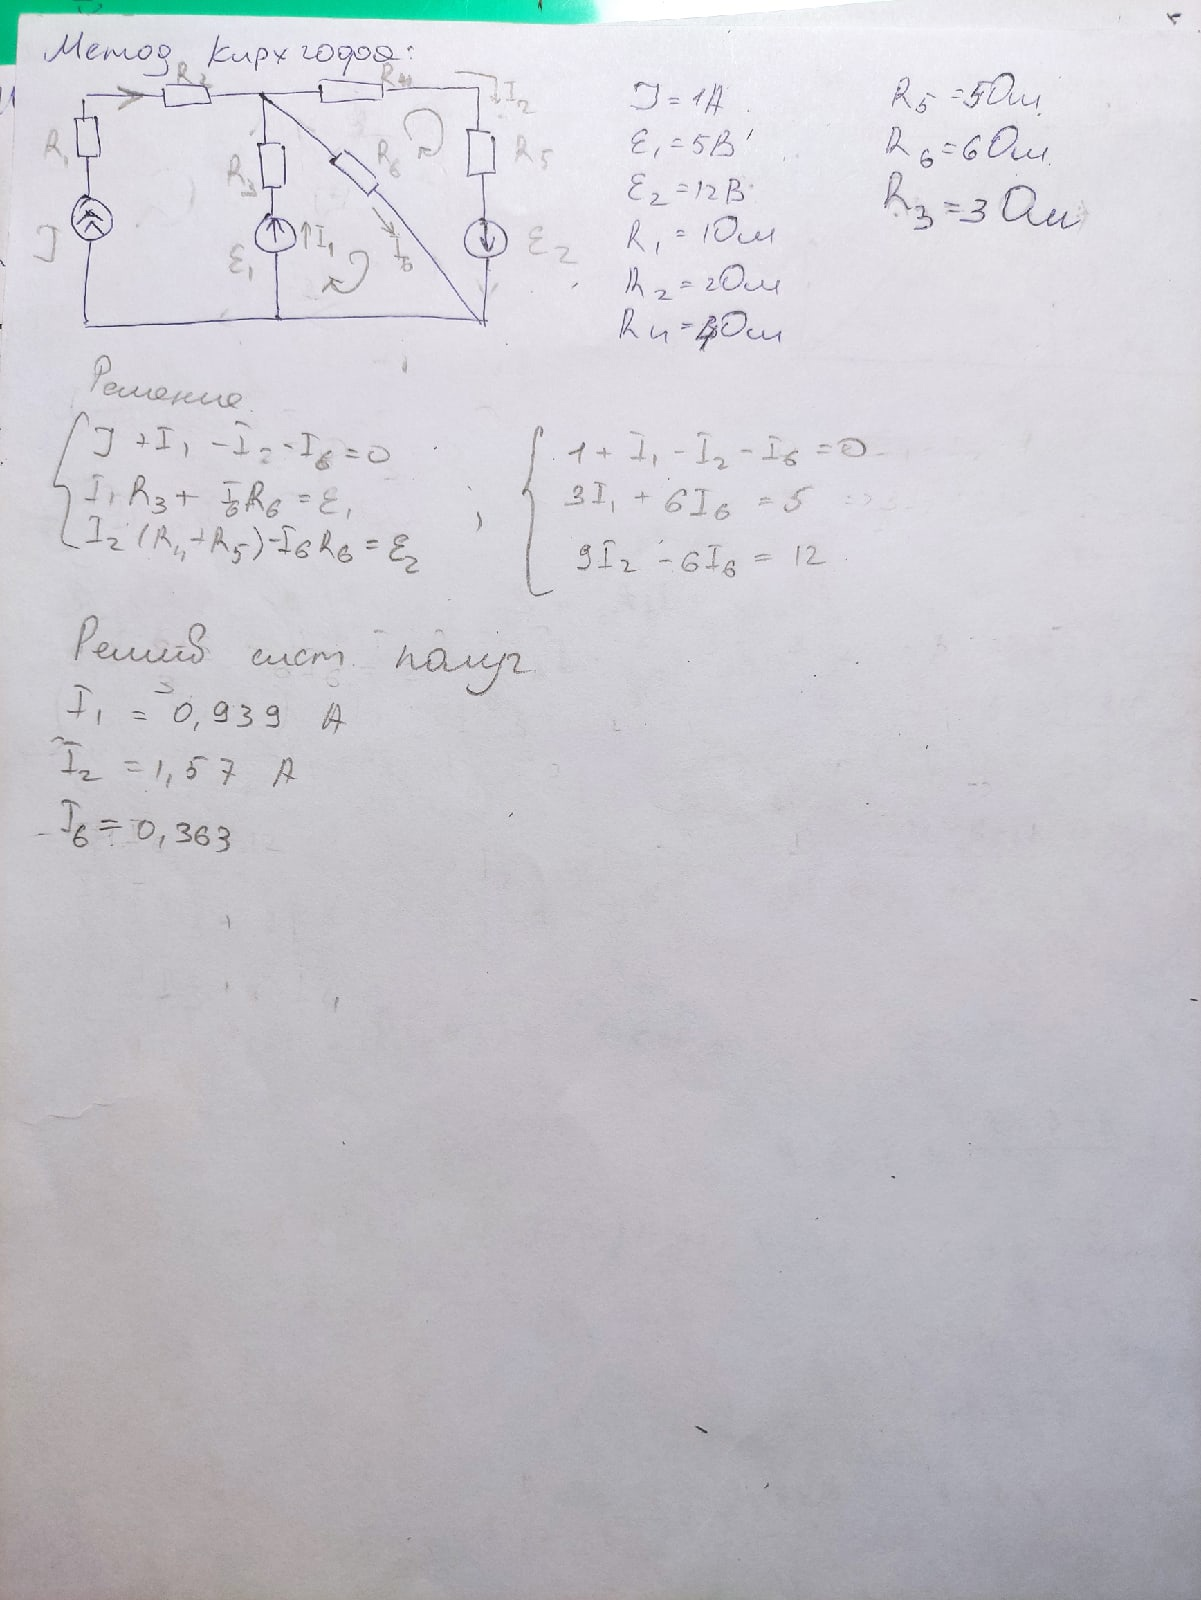 Метод Кирхгофа:
R2
R4
I2
R1
R3
R6
R5
J
E1
I1
I6
E2
J = 1A
E1 = 5В
E2 = 12В
R1 = 1Ом
R2 = 2Ом
R4 = 4Ом
R5 = 5Ом
R6 = 6Ом
R3 = 3Ом
Решение
J + I1 - I2 - I6 = 0
I1R3 + I6R6 = E1
I2(R4+R5) - I6R6 = E2
;
1 + I1 - I2 - I6 = 0
3I1 + 6I6 = 5
9I2 - 6I6 = 12
Решив сист. получ
I1 = 0,939 A
I2 = 1,57 A
I6 = 0,363